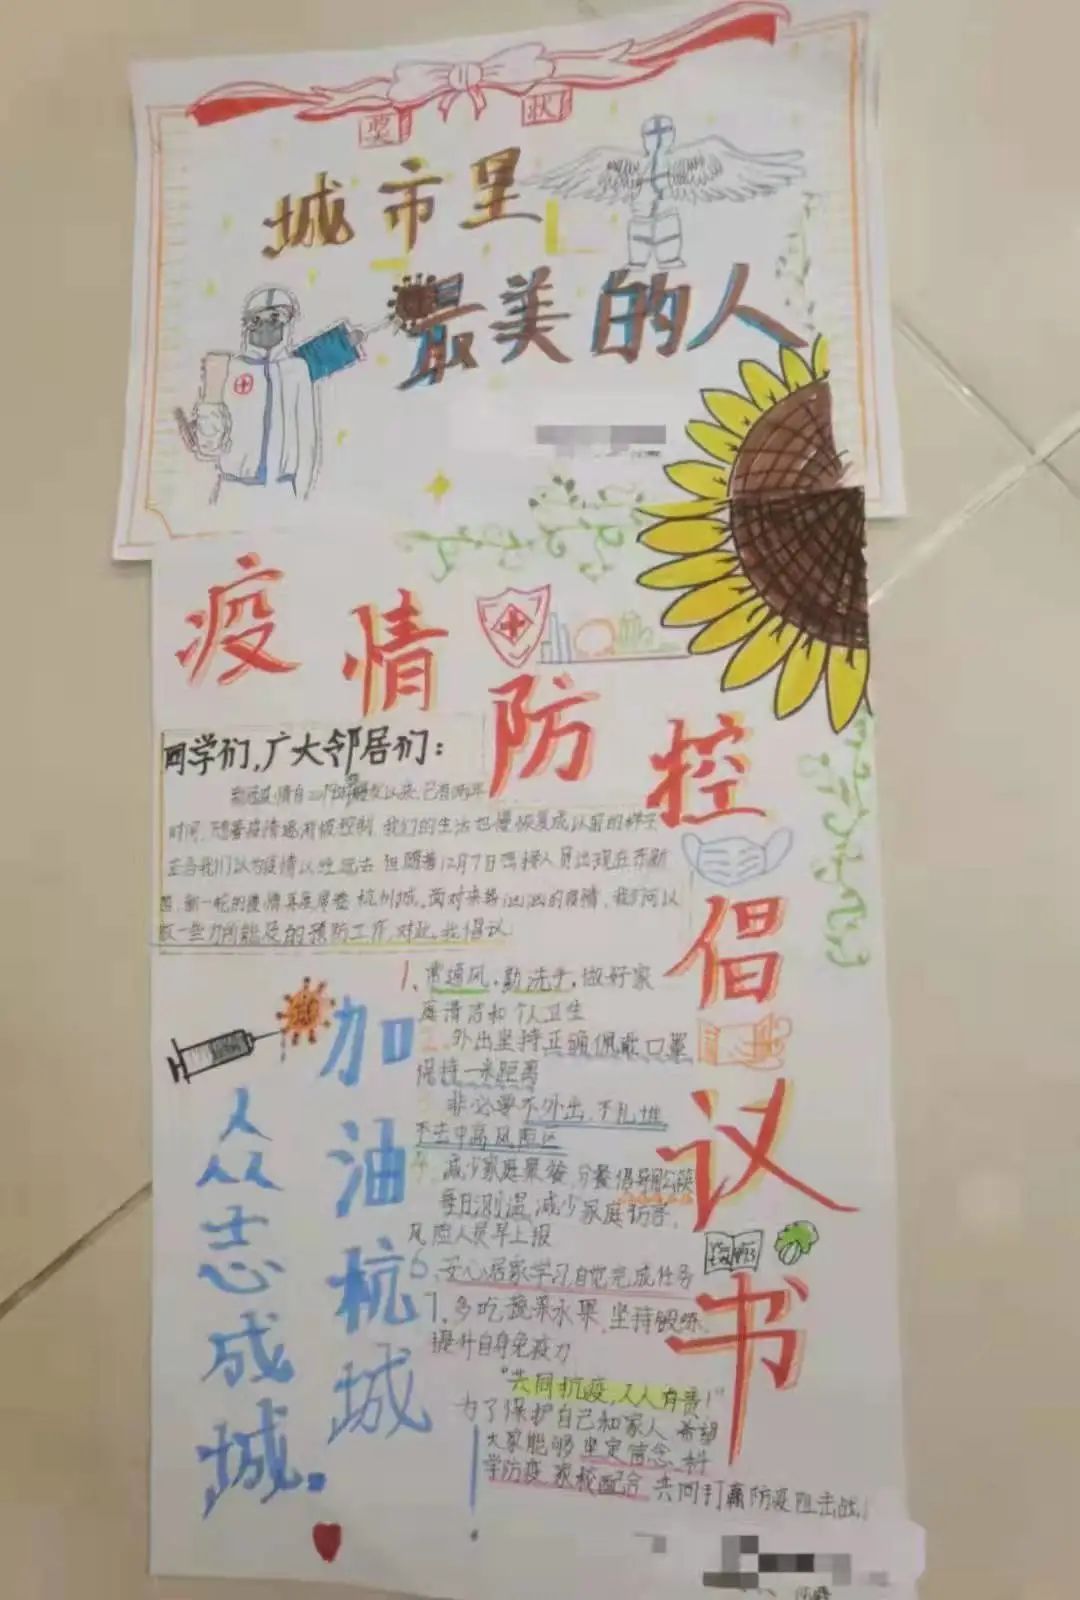 奖状
城市里
最美的人
疫情防控倡议书
同学们,广大邻居们:
新冠疫情自2019年爆发以来,已有两年
时间,随着疫情逐渐被控制,我们的生活也慢恢复成以前的样子
正当我们以为疫情认经远去,但随着12月7日密接人员出现在
新一轮的疫情再度席卷杭州城,面对来势汹汹的疫情,我们可以
做一些力所能及的预防工作,对此,我倡议:
1、常通风,勤洗手,做好家
庭清洁和个人卫生
2、外出坚持正确佩戴口罩
保持一米距离
非必要不外出,不扎堆
不去中高风险区
4、减少家庭聚餐,分餐倡导用公筷
每日测温,减少家庭访客,
风险人员早上报
6、安心居家学习自觉完成任务
7、多吃蔬菜水果,坚持锻炼,
提升自身免疫力
"共同抗疫,人人有责!"
为了保护自己和家人,希望
大家能够坚定信念、科
学防疫,家校配合,共同打赢防疫阻击战!
加油杭城
人众志成城。